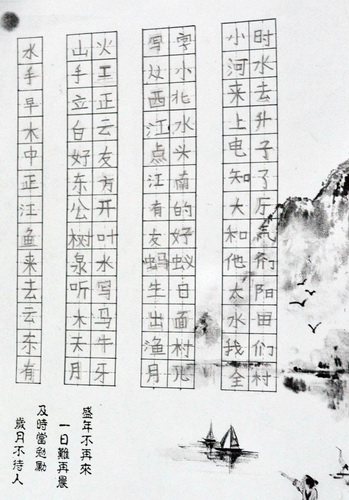 水手早木中正江鱼来去云东有
山火
手工
立正
白云
好友
东方
公开
树叶
泉水
听写
木马
夫牛
月牙
写字
小
西北
江水
点头
江南
有的
友好
蚂蚁
生白
出面
渔村
月儿
小时
河水
来去
上升
电子
知了
大厅
和气
他们
太阳
水田
我们
全村
盛年不再來
一日難再晨
及時當勉勵
歲月不待人